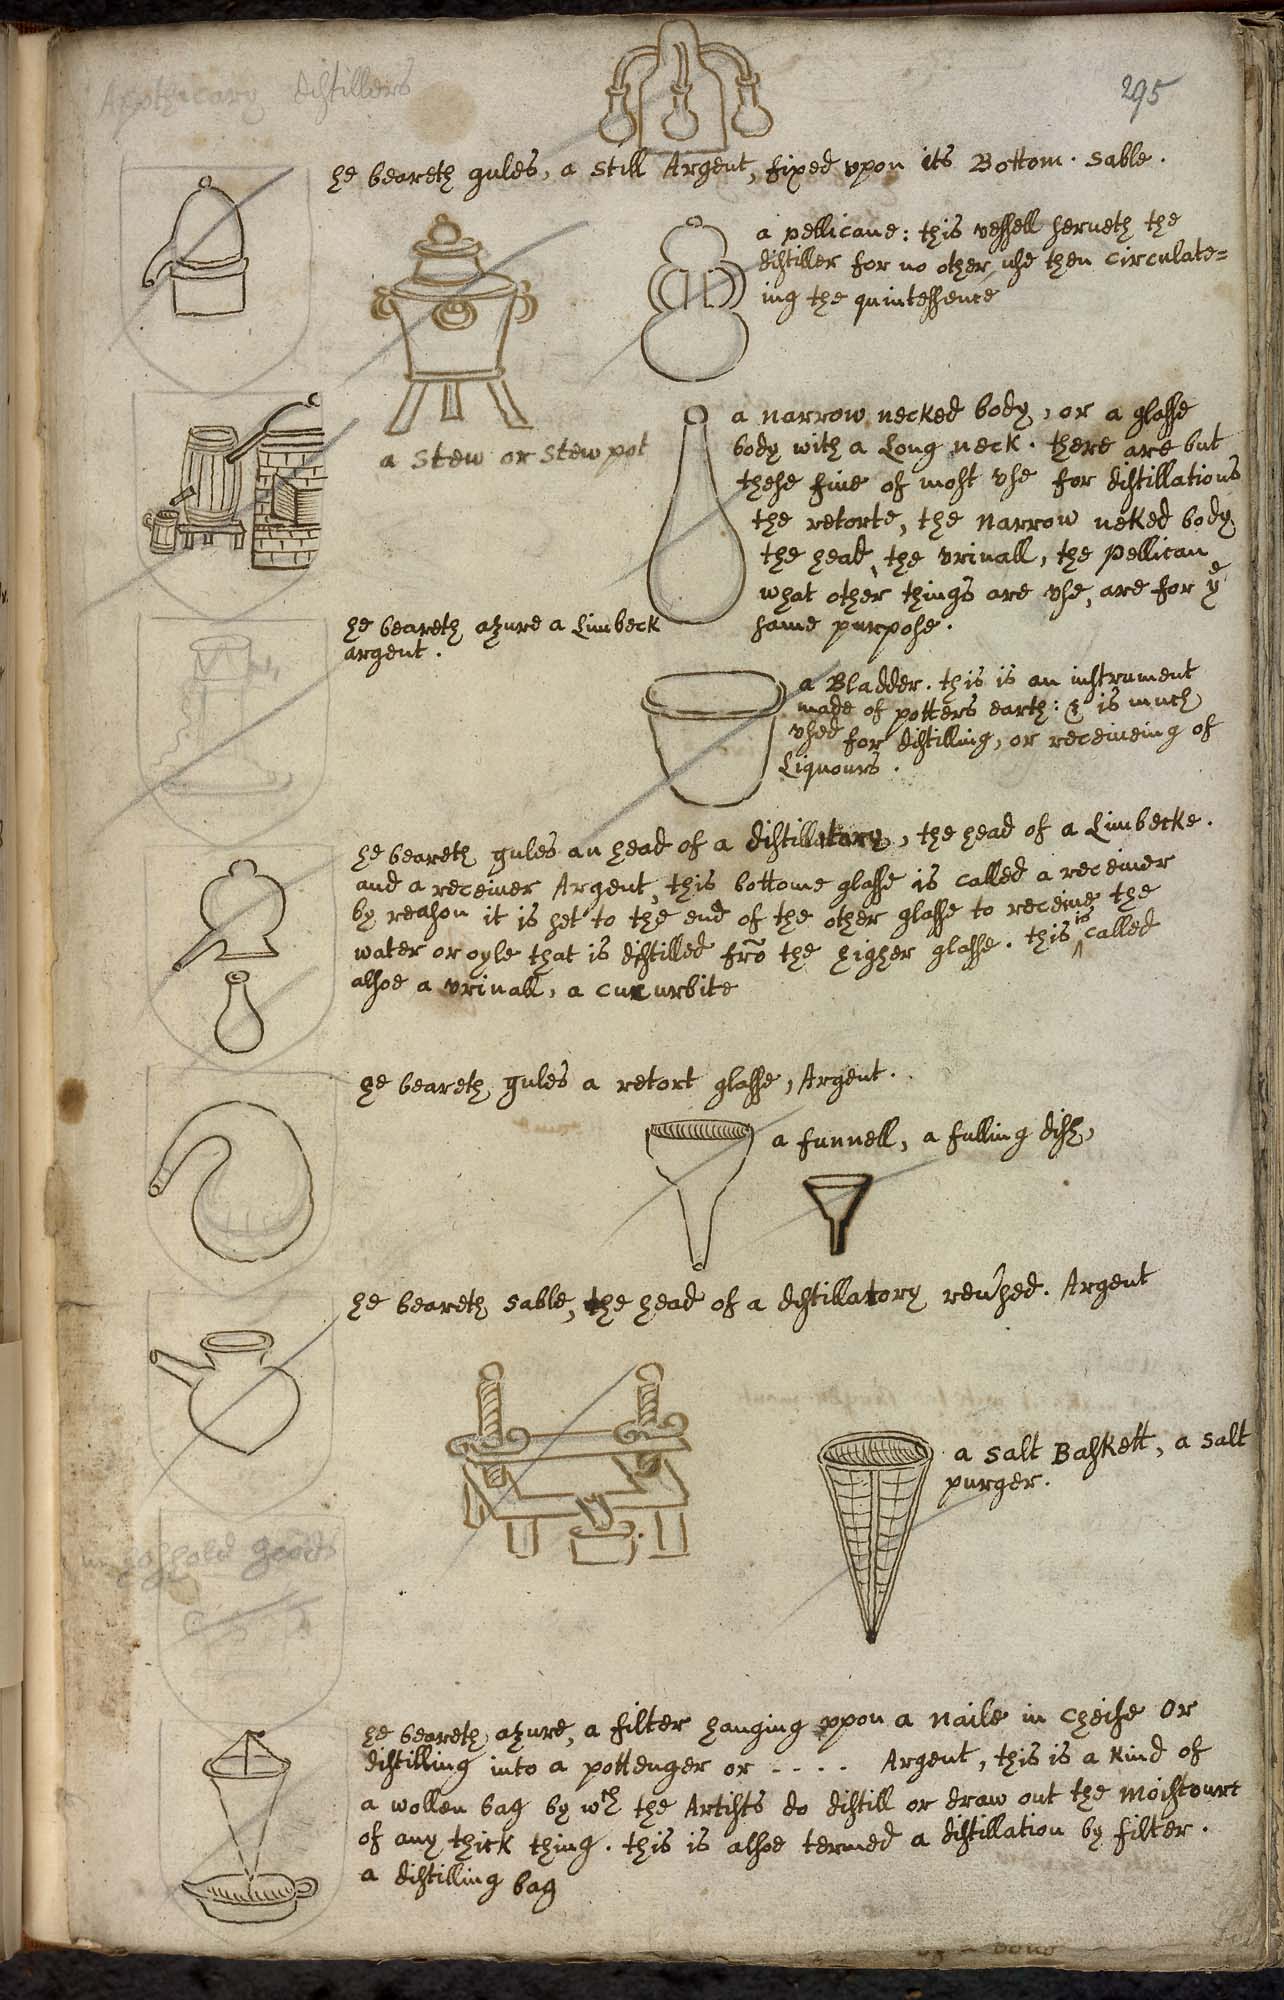 Apothicary Distillers
295
he beareth gules, a Still Argent, fixed vpon its Bottom. Sable.
a pellicane: this vessell serueth the
distiller for no other use then circulate=
ing the quintessence
a stew or stew pot
a narrow necked body, or a glasse
body with a Long neck. there are but
these fiue of most vse for distillations
the retorte, the narrow neked body
the head, the vrinall, the pellican
what other things are vse, are for ye
same purpose.
he beareth azure a Limbeck
argent.
a Bladder. this is an instrument
made of potters earth: & is much
vsed for distilling, or receiueing of
Liquours.
he beareth gules an head of a distillatary, the head of a Limbecke.
and a receiuer Argent, this bottome glasse is called a receiuer
by reason it is set to the end of the other glasse to receiue the
water or oyle that is distilled frō the higher glasse. this is called
alsoe a vrinall, a cucurbite
he beareth gules a retort glasse, Argent.
a funnell, a fulling dish,
he beareth sable, the head of a distillatory reu'sed. Argent
a salt Baskett, a salt
purger.
goods
he beareth azure, a filter hanging vpon a naile in cheife Or
distilling into a pottenger or - - - - Argent, this is a kind of
a wollen bag by wth the Artists do distill or draw out the moistoure
of any thick thing. this is alsoe termed a distillation by filter.
a distilling bag